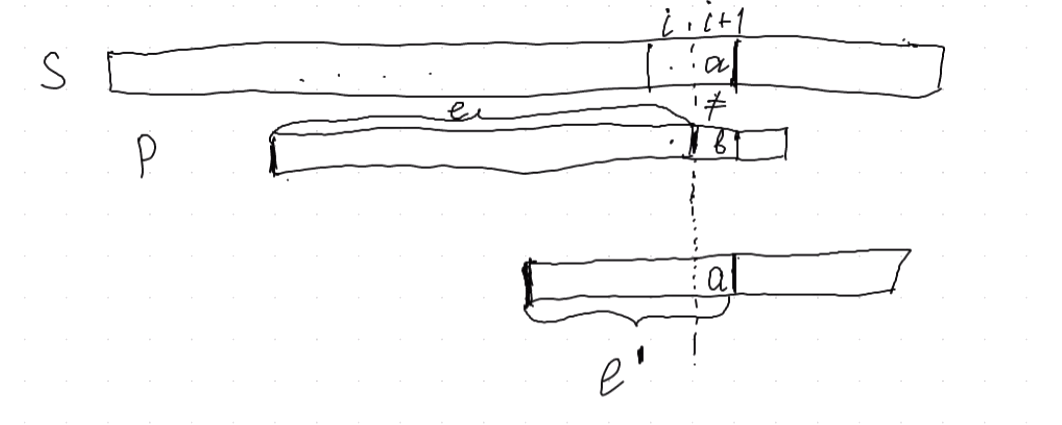 i i+1
S a
≠
e
P b
a
e'